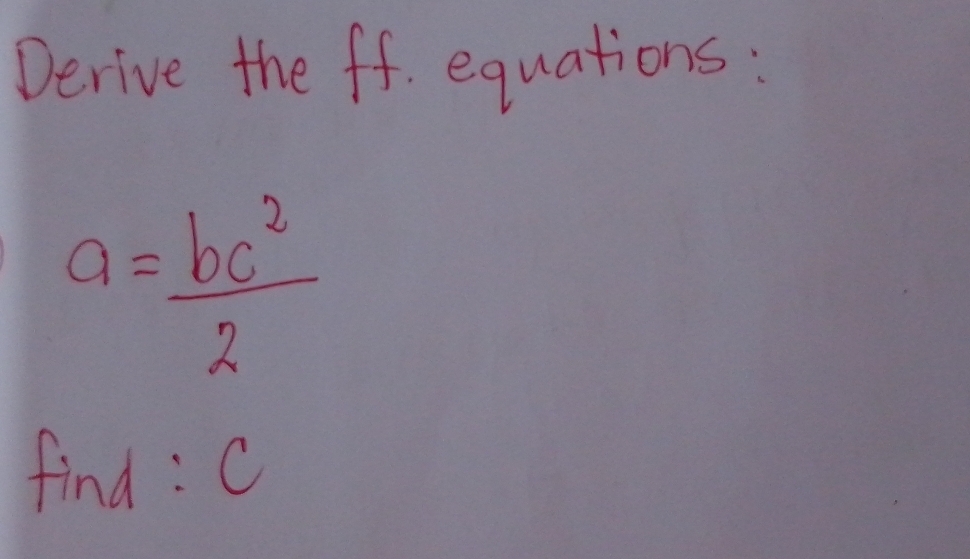 Derive the ff. equations:
a = bc²
2
find : C